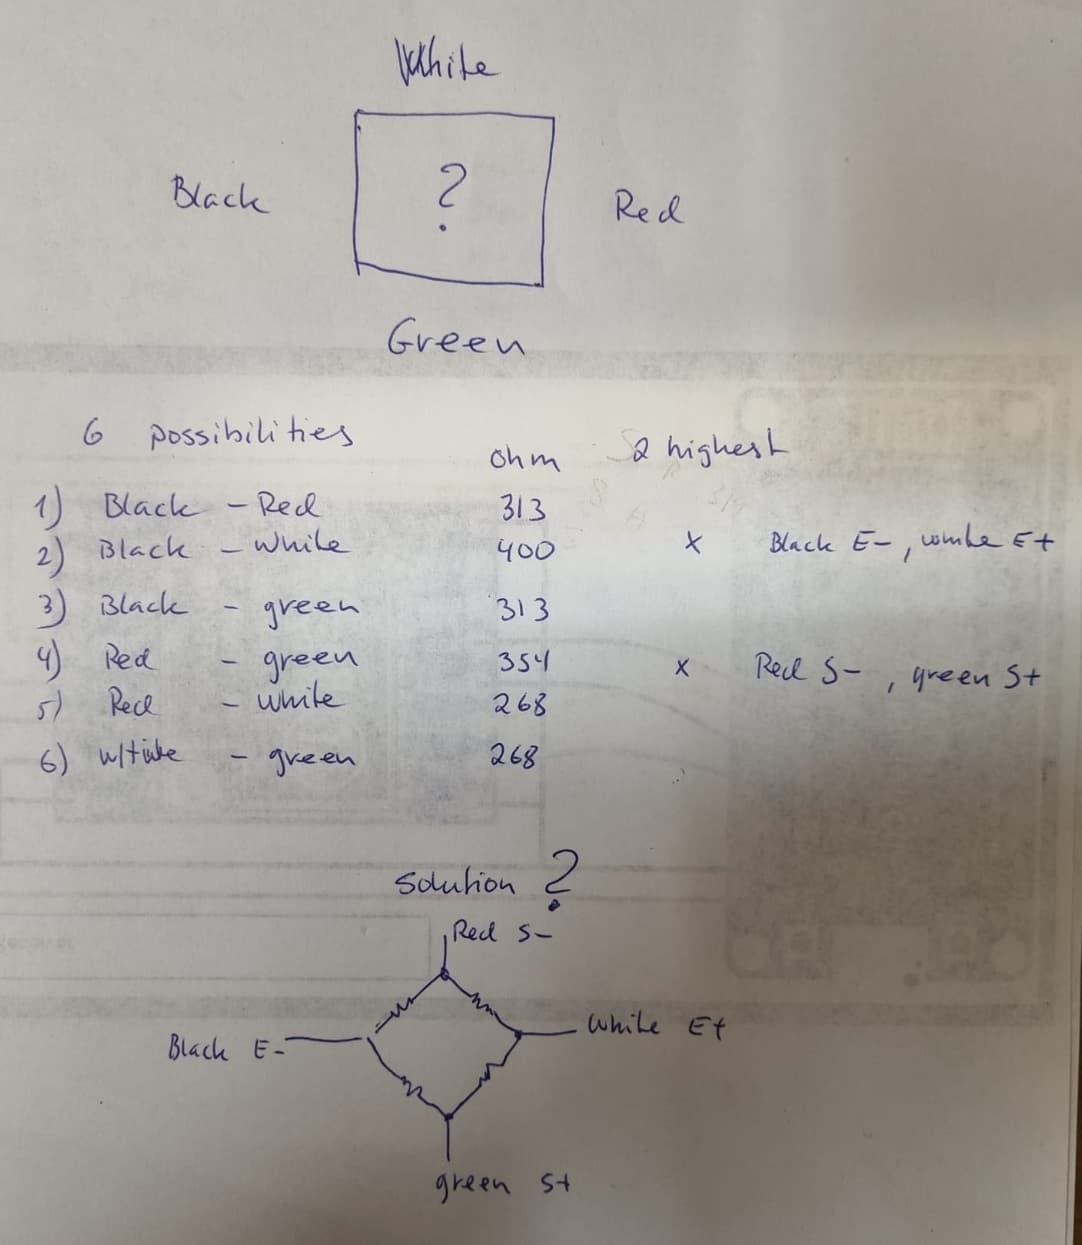 White
?
Black
Red
Green
6 possibilities
ohm 2 highest
1) Black - Red 313
2) Black - White 400 x Black E-, white E+
3) Black - green 313
4) Red - green 354 x Red S-, green S+
5) Red - white 268
6) white - green 268
Solution ?
Red S-
White E+
Black E-
green S+